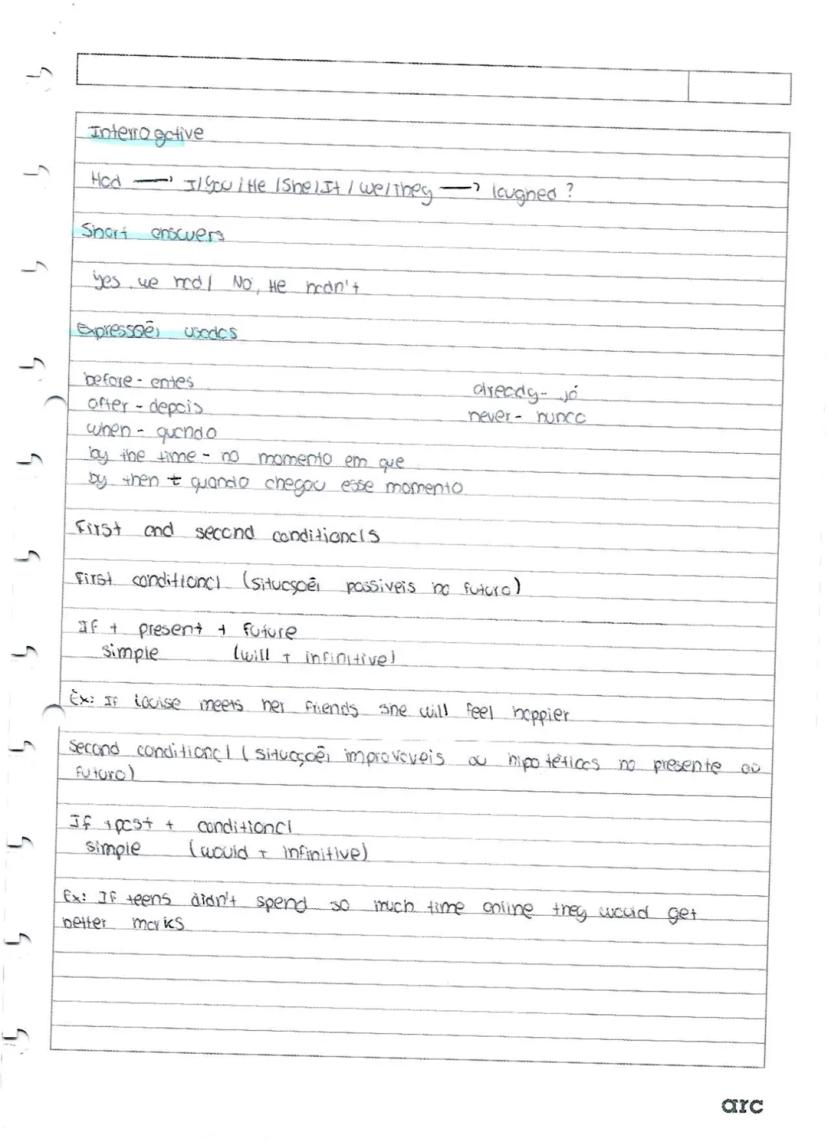 Interrogative
Had → I/You/He/She/It/we/they → laughed?
Short answers
yes, we had/ No, He hadn't
Expressões usadas
before - antes
already - já
after - depois
never - nunca
when - quando
by the time - no momento em que
by then - quando chegou esse momento
First and second conditionals
First conditional (situações possiveis no futuro)
If + present + future
simple (will + infinitive)
Ex: If Louise meets her friends she will feel happier
Second conditional (situações improváveis ou hipotéticas no presente ou
futuro)
If + past + conditional
simple (would + infinitive)
Ex: If teens didn't spend so much time online they would get
better marks
arc